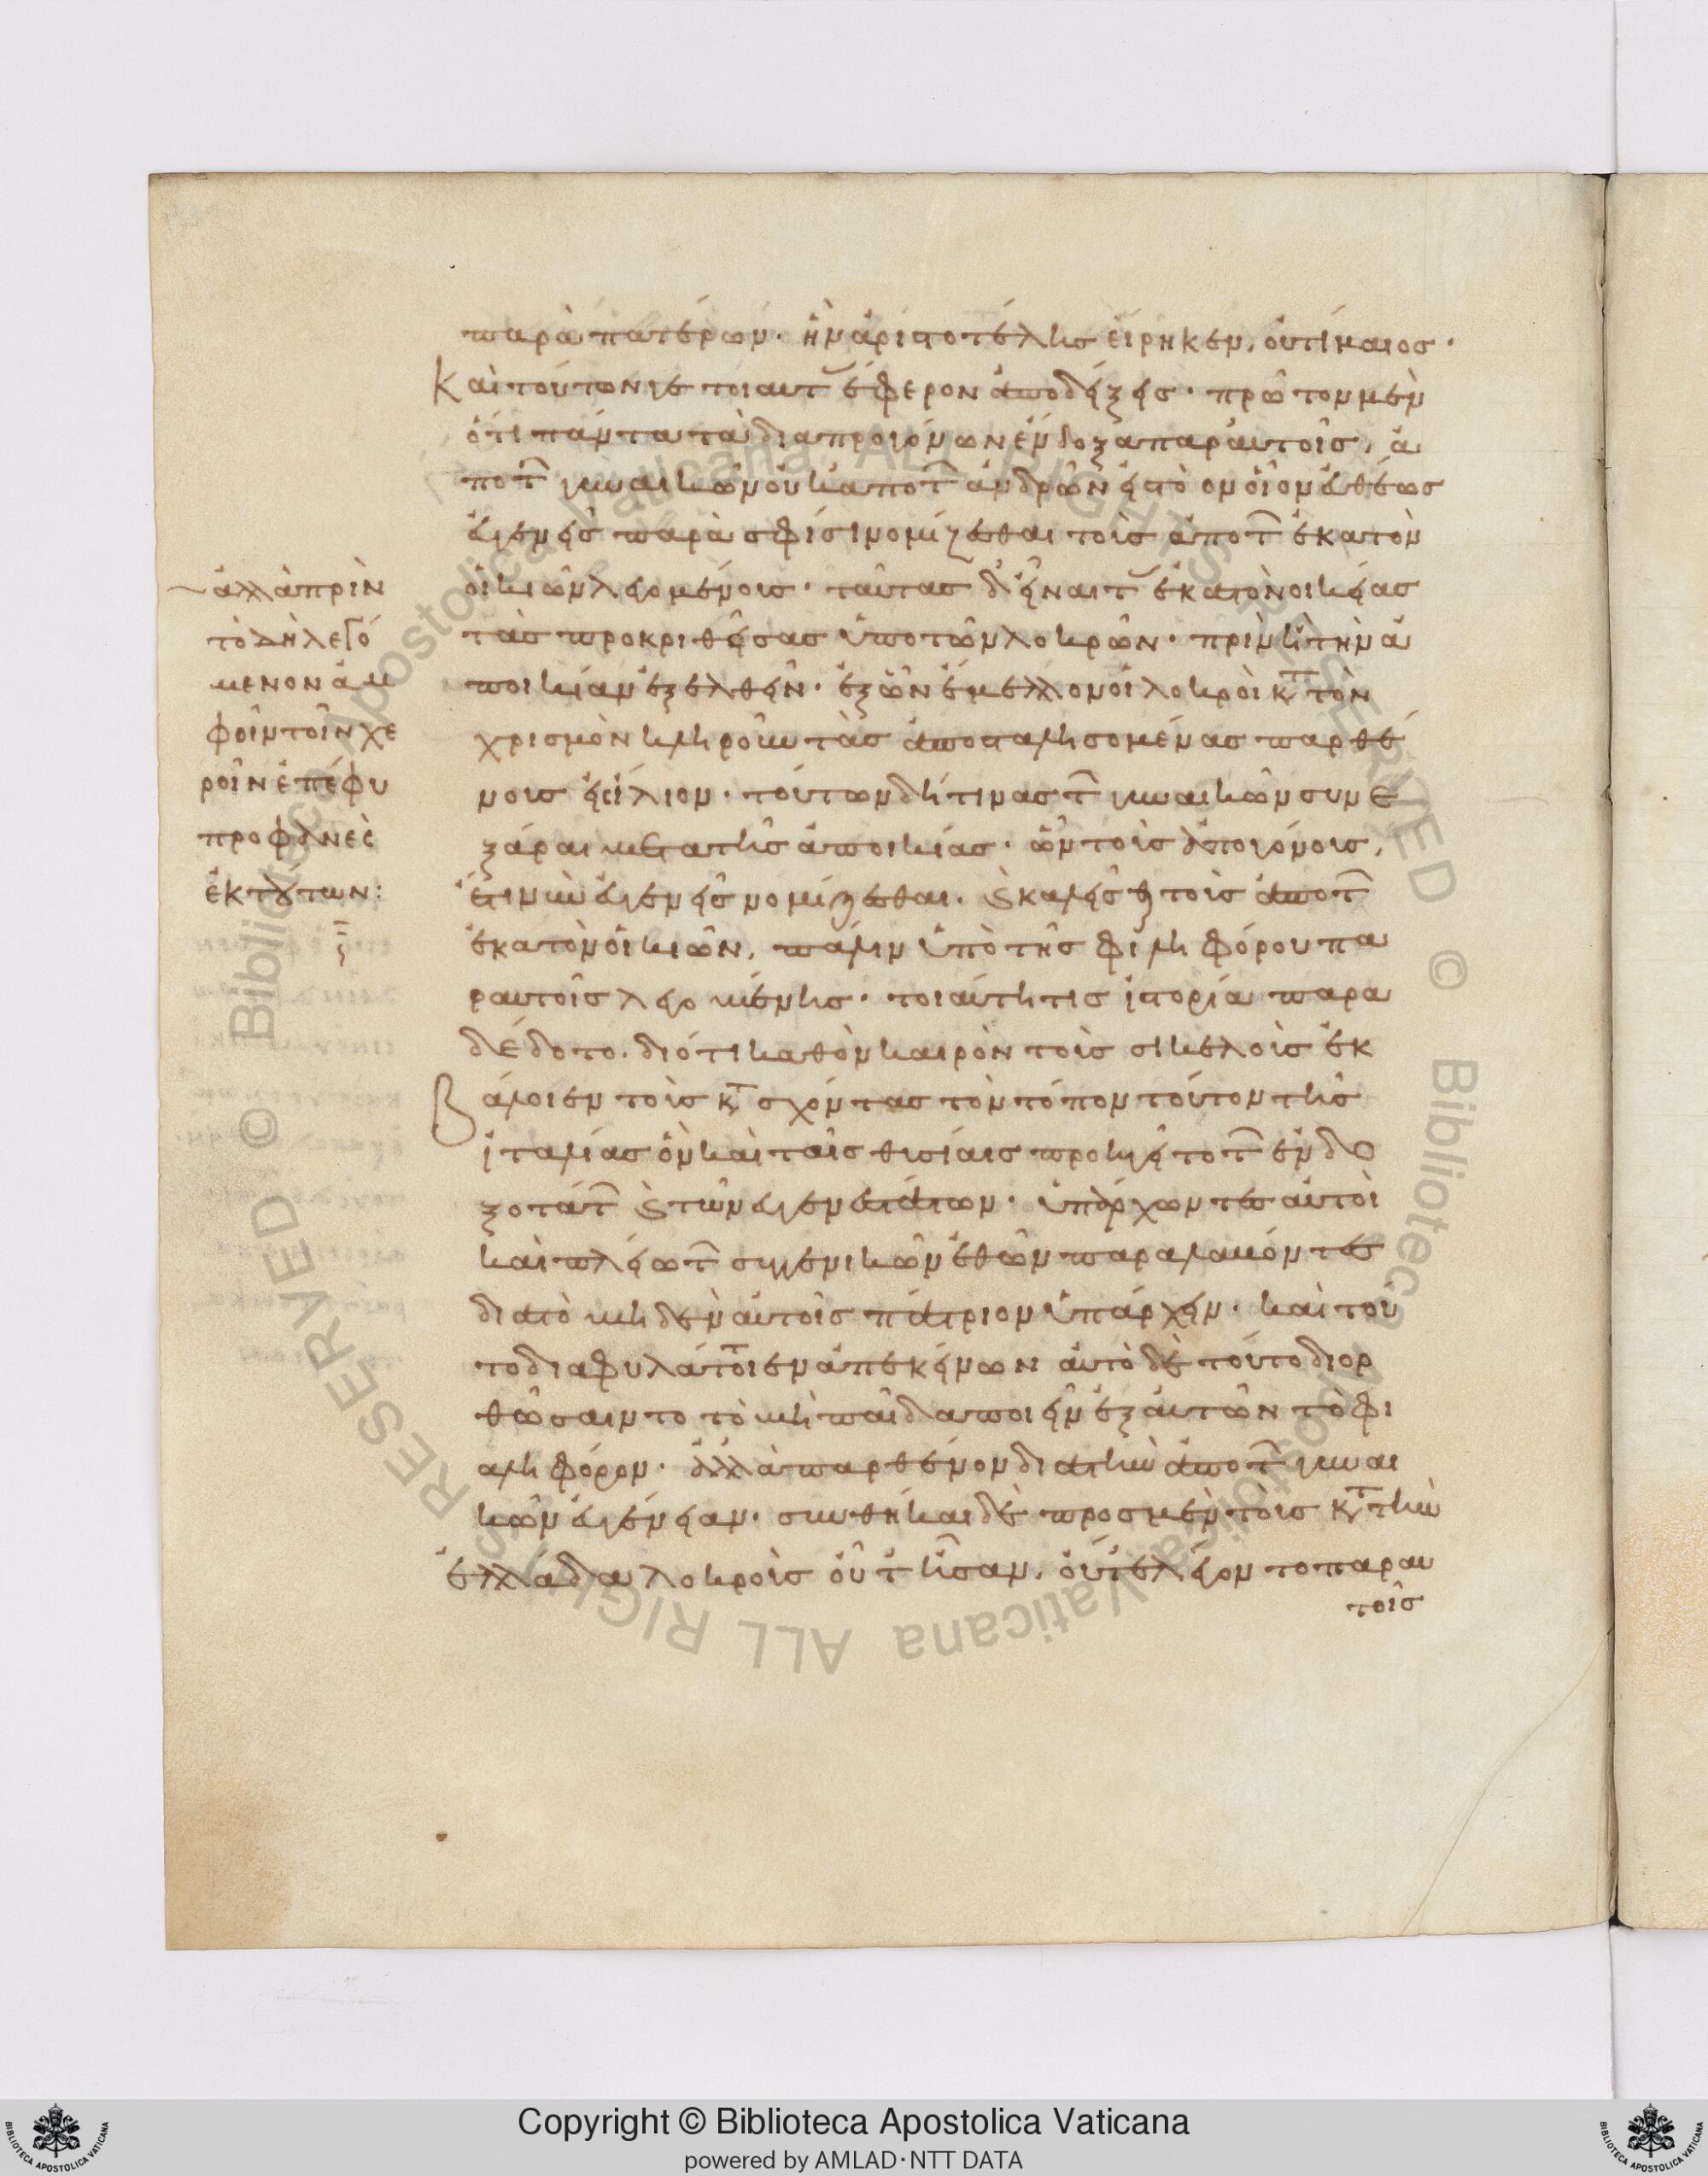 παρὰ πατέρων· ἣν ἀριστοτέλης εἴρηκεν, οὐ τίμαιος·
Καὶ τούτων γε τοιαύτ ἔφερον ἀποδείξεις· πρῶτον μὲν
ὅτι πάντα τὰ διὰ προγόνων ἔνδοξα παρ αὐτοῖς, ἀ
ποτ γυναικῶν οὐκ ἀποτ ἀνδρῶν ἐστὸ ὁμοῖον εὐθέως
εὐγενεῖς παρὰ σφίσι νομίζεσθαι τοῖς ἀποτ ἑκατὸν
οἰκιῶν λεγομένοις· ταύτας δ εἶναι τ ἑκατὸν οἰκείας
τὰς προκριθείσας ὑπὸ τῶν λοκρῶν· πρὶν ἢ τὴν ἀ
ποικίαν ἐξελθεῖν· ἐξ ὧν ἔμελλον οἱ λοκροὶ κτ τὸν
χρισμὸν κληροῦν τὰς ἀποσταλησομένας παρθέ
νους εἰς ἴλιον· τούτων δή τινας τ γυναικῶν συνε
ξάραι μετὰ τῆς ἀποικίας· ὧν τοὺς ἀπογόνους,
ἔτι νῦν εὐγενεῖς νομίζεσθαι. καὶ καλεῖσθαι τοὺς ἀποτ
ἑκατὸν οἰκιῶν, πάλιν ὑπὸ τῆς φιληφόρου πα
ρ αὐτοῖς λεγομένης· τοιαύτη τις ἱστορία παρα
δέδοτο. διότι καθ ὃν καιρὸν τοὺς σικελοὺς ἐκ
βάλοιεν τοὺς κτσχόντας τὸν τόπον τοῦτον τῆς
ἰταλίας ὃν καὶ ταῖς θυσίαις προηγεῖτο τ ἐνδο
ξοτάτ καὶ τῶν εὐγενεστάτων· ὑπάρχων τε αὐτοὶ
καὶ πλείω τ σικελικῶν ἐθῶν παραλαβόντες
διὰ τὸ μηδὲν αὐτοῖς πάτριον ὑπάρχειν· καὶ τοῦ
το διαφυλάττοιεν ἀπ ἐκείνων αὐτὸ δὲ τοῦτο διορ
θώσαιντο τὸ μὴ παῖδα ποιεῖν ἐξ αὐτῶν τὸ φι
αληφόρον· ἀλλὰ παρθένον διὰ τὴν ἀποτ γυναι
κῶν εὐγένειαν· συνθῆκαι δὲ πρὸς μὲν τοὺς κτ τὴν
ἑλλάδα λοκροὺς οὔτ ἦσαν, οὔτ ἐλέγοντο παρ αυ
τοῖς
ἀλλὰ πρὶν
τὸ δὴ λεγό
μενον ἀμ
φοῖν τοῖν χε
ροῖν ἐπέφυ
προφανὲς
ἐκ τούτων: